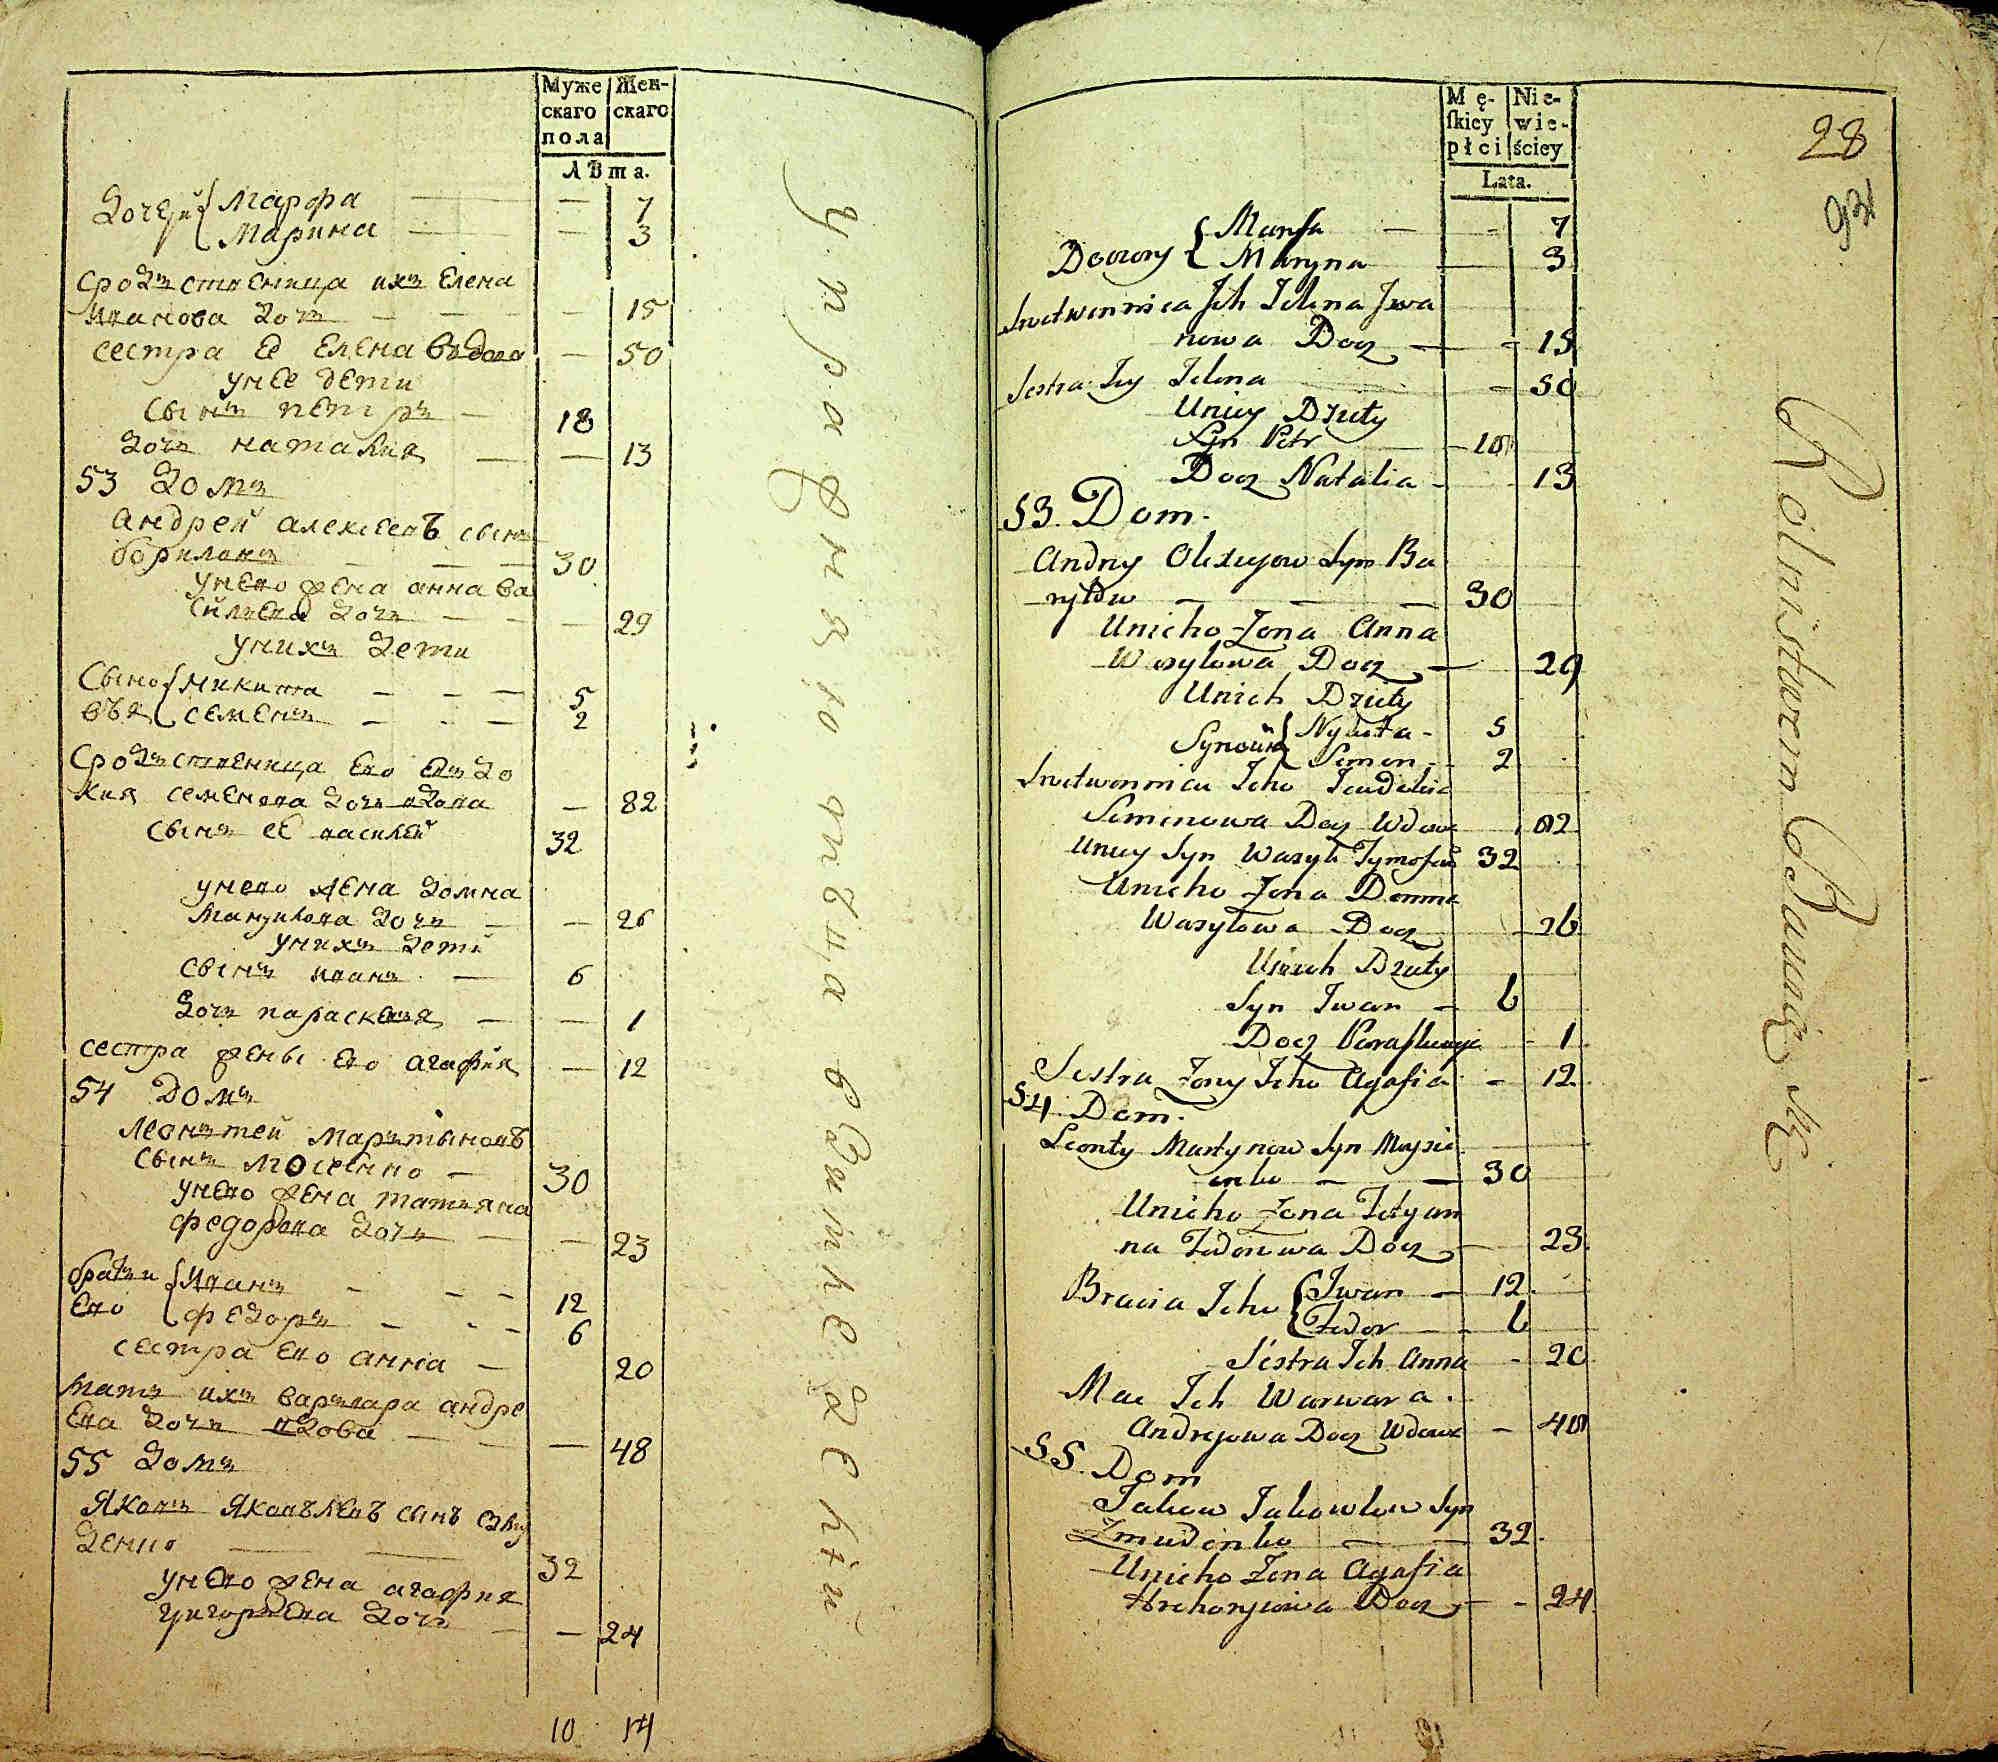 Муже Жен-
скаго скаго
пола
Лѣта.
Дочери { Марфа — — 7
Марина — — 3
сродственица ихъ Елена
Иванова дочь — — — 15
сестра ее Елена вдова — 50
у нее дети
сынъ петръ — 18
дочь наталия — — 13
53 домъ
андрей алексеевъ сынъ
бориловъ — — 30
у него жена анна ва
сильева дочь — — 29
у нихъ дети
Сыно { микита — — — 5
вья семенъ — — — 2
Сродственица его евдо
кия семенова дочь вдова — 82
сынъ ее василей 32
у него жена домна
Мануилова дочь — — 26
у нихъ дети
сынъ иванъ — 6
дочь параскевия — — 1
сестра жены его агафия — 12
54 домъ
леонтей мартыновъ
сынъ мосеенко — 30
у него жена татьяна
федорова дочь — — 23
братьи { иванъ — — — 12
его федоръ — — — 6
сестра его анна — 20
мать ихъ варвара андре
ева дочь вдова — — — 48
55 домъ
Яковъ Яковълевъ сынъ змуд
денко — — 32
у него жена агафия
григорьева дочь — — 24
10 14
управляющаго
Mę- Nie-
skiey wie-
płci ściey
Lata.
28
Doczery { Marfa — - 7
Maryna — 3
Srodtwennica Jch Jelena Jwa
nowa Docz — - 15
Sestra Jey Jelena — 50
Uniey Dziety
Syn Petr — 18
Docz Natalia - 13
53 Dom.
Andrey Olexiejow Syn Ba
ryłow — — — 30
Unieho Żona Anna
Wasylowa Docz — 29
Unich Dziety
Synowia { Nykita - 5
Semen - 2
Srodtwennica Jeho Jewdokia
Semenowa Docz Wdowa 82
Uniey Syn Wasyli Tymofiew 32
Unieho Żona Domna
Wasylowa Docz - 26
Unich Dziety
Syn Jwan — 6
Docz - 1
Sestra Żony Jeho Agafia - 12
54 Dom.
Leonty Martynow Syn Mojsie
enko — — 30
Unieho Żona Tetyan
na Fedorowa Docz — 23.
Bracia Jeho { Jwan — 12.
Fedor — 6
Siestra Jch Anna - 20
Mać Jch Warwara.
Andrejowa Docz Wdowa — 48
55. Dom
Jakow Jakowlow Syn
Żmudenko — — 32.
Unieho Żona Agafia
Hrehoryiowa Docz — - 24